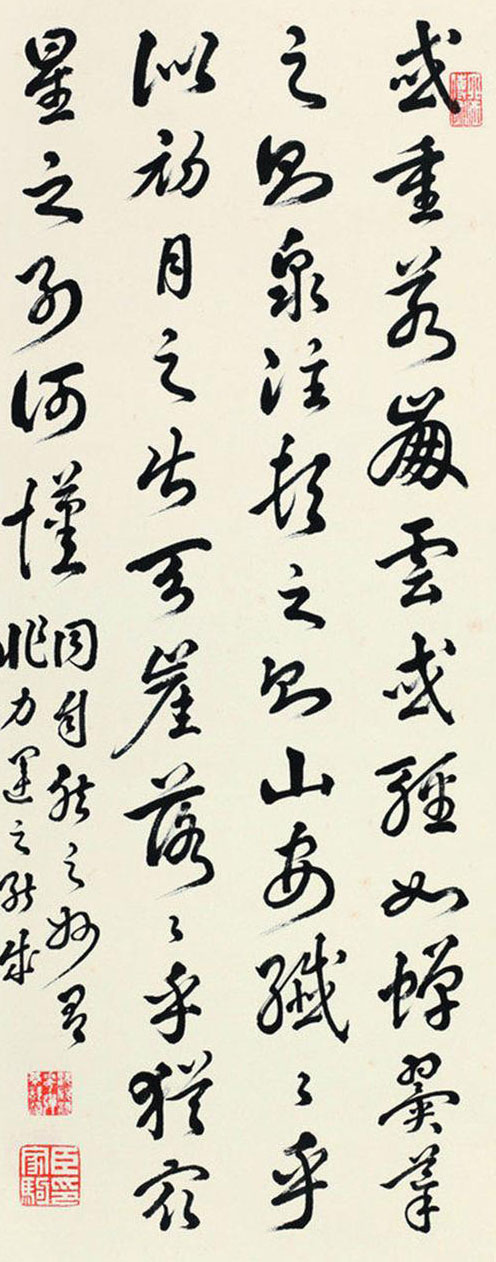 或重若崩雲或輕如蟬翼導
之則泉注頓之則山安纖〻乎
似初月之出天崖落〻乎猶衆
星之列河漢
同自然之妙有
非力運之能成
臣印
家駒